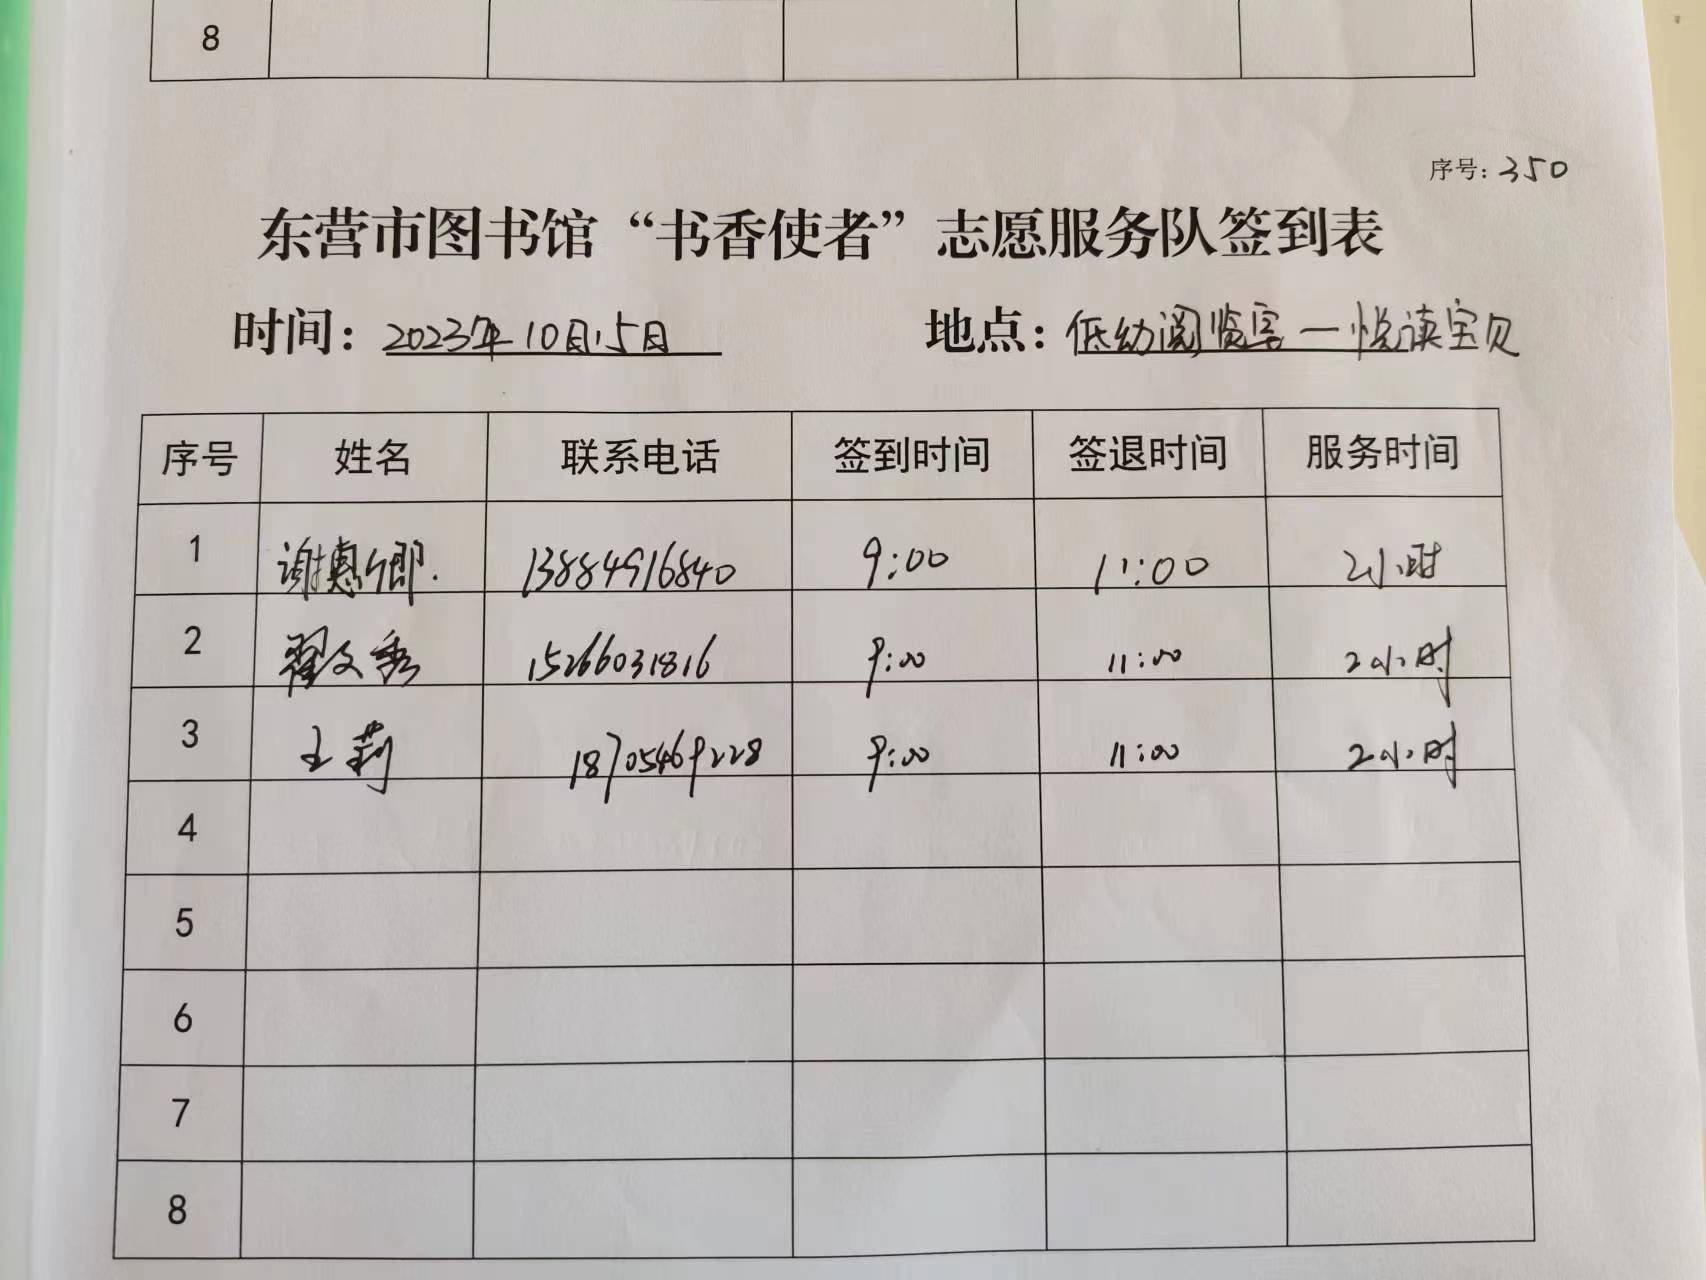 8
序号: 350
东营市图书馆“书香使者”志愿服务队签到表
时间: 2023年10月15日 地点: 低幼阅览室—悦读宝贝
序号 姓名 联系电话 签到时间 签退时间 服务时间
1 谢惠卿. 13884916840 9:00 11:00 2小时
2 翟文秀 15266031816 9:00 11:00 2小时
3 王莉 18705469228 9:00 11:00 2小时
4
5
6
7
8